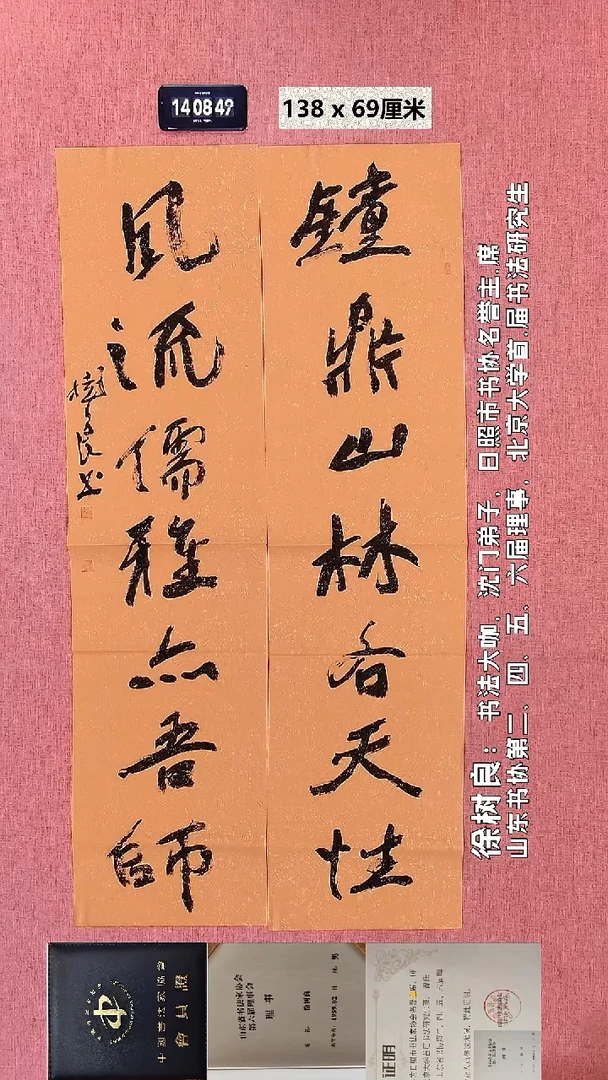 14 08 49
138 x 69厘米
鐘鼎山林各天性
風流儒雅亦吾師
樹良书
徐树良：书法大咖，沈门弟子，日照市书协名誉主.席
山东书协第二、四、五、六届理事，北京大学首.届书法研究生
中國書法家協會
會員證
山东省书法家协会
第六届理事会
理事
证明